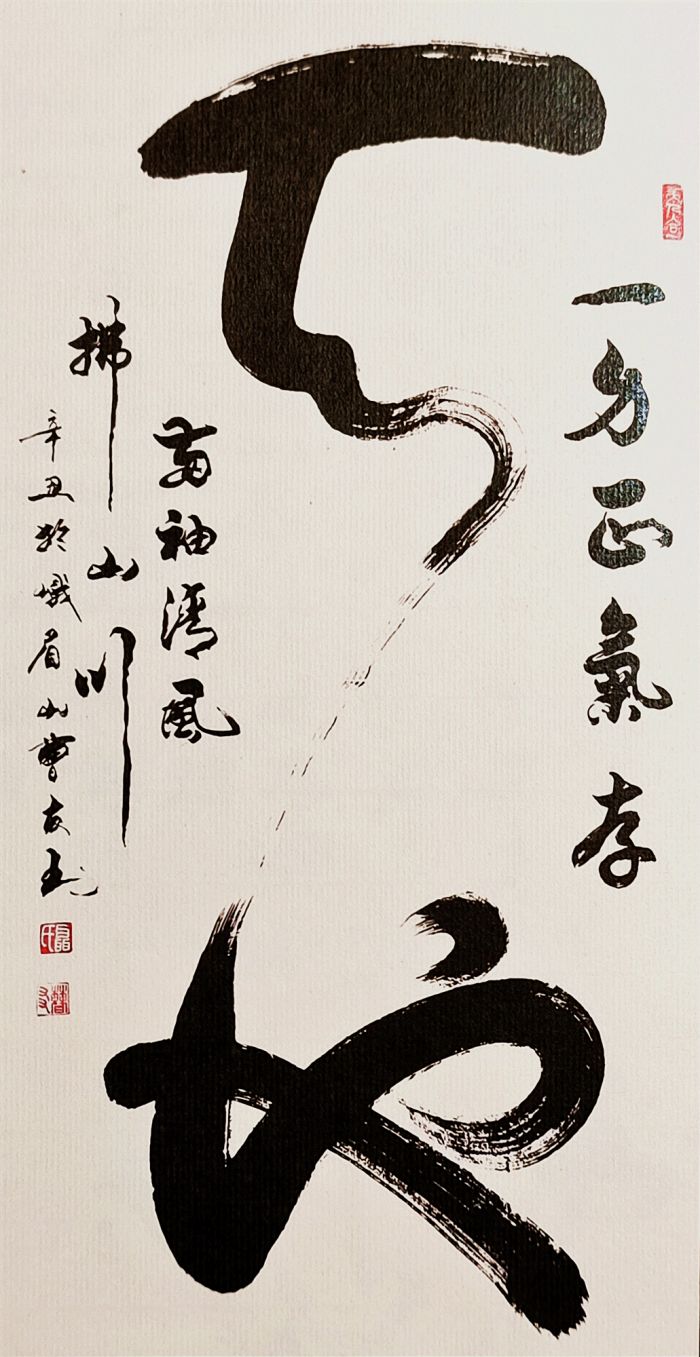 一身正氣存
天地
两袖清風
拂山川
辛丑於峨眉山曹友